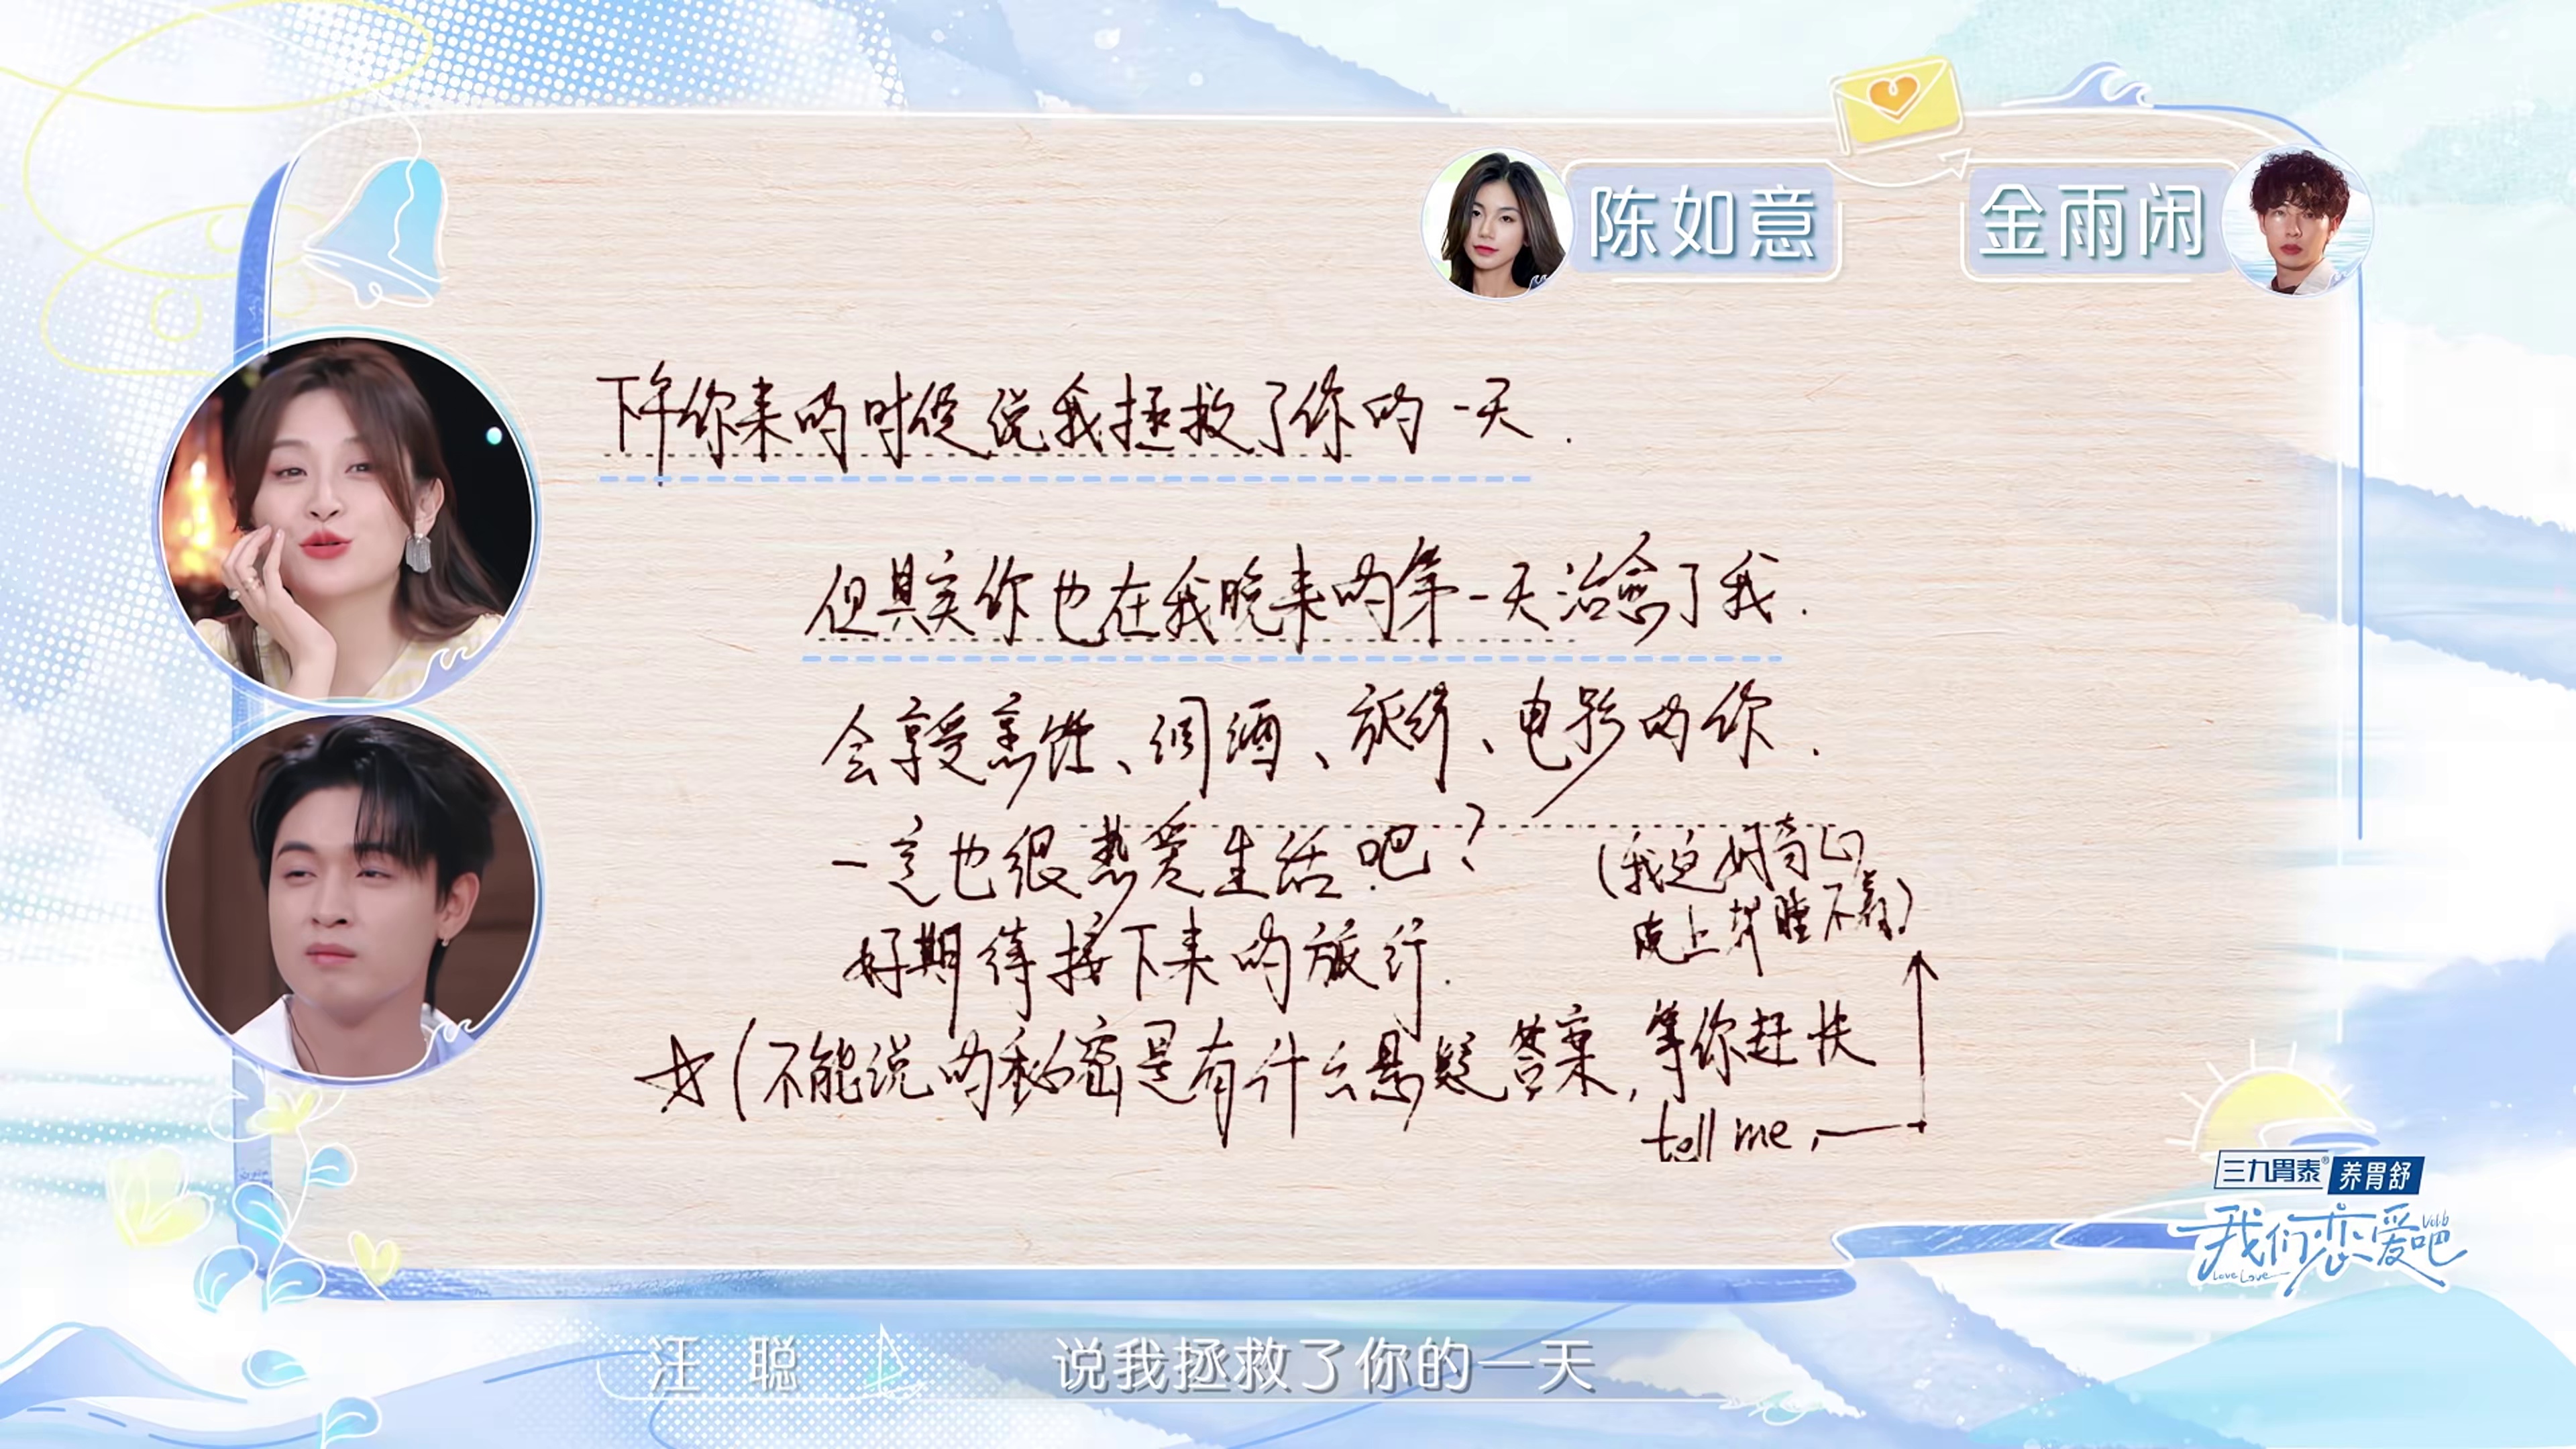 陈如意 金雨闲
下午你来的时候说我拯救了你的一天.
但其实你也在我晚来的第一天治愈了我.
会享受烹饪、调酒、旅行、电影的你.
一定也很热爱生活吧?
(我这好奇心
晚上都睡不着)
好期待接下来的旅行.
☆(不能说的秘密是有什么悬疑答案,等你赶快
tell me,
三九胃泰® 养胃舒
我们恋爱吧 Vol.6
Love Love
汪 聪 说我拯救了你的一天